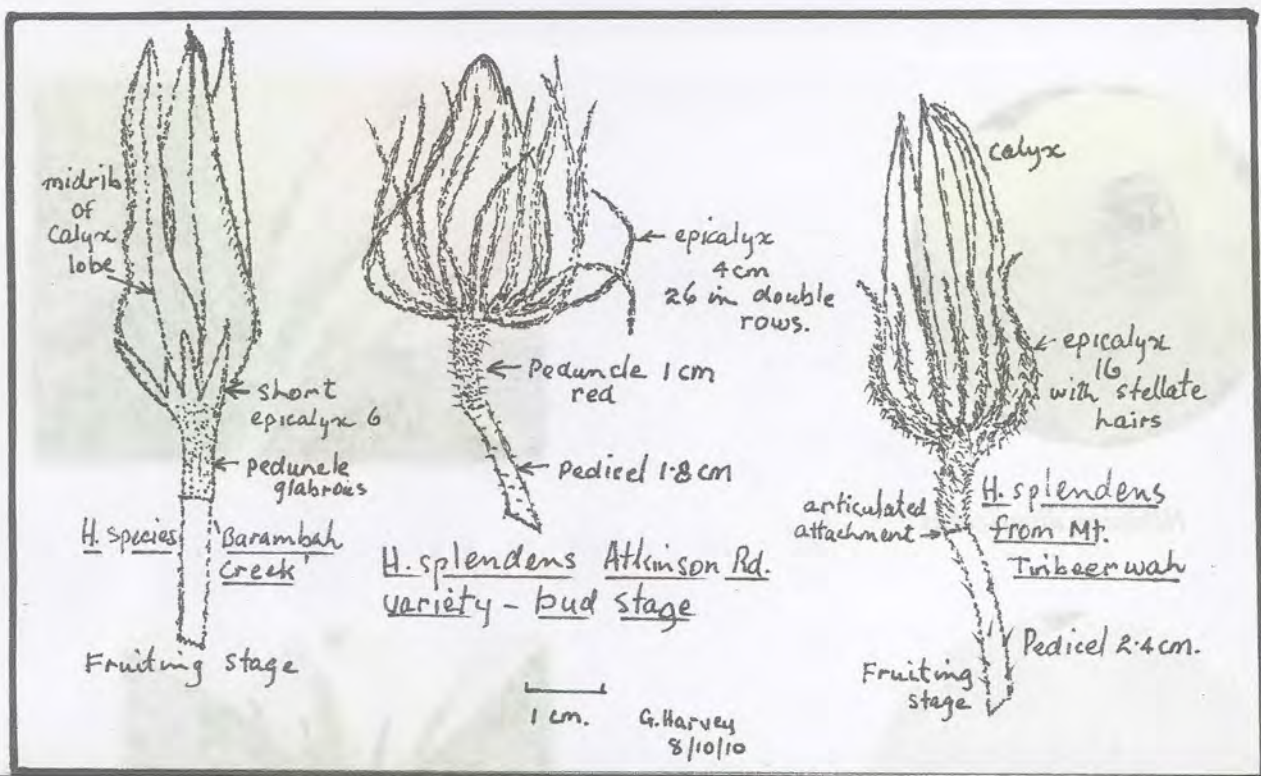 midrib
of
Calyx
lobe
short
epicalyx 6
peduncle
glabrous
H. species 'Barambah
Creek'
Fruiting stage
epicalyx
4cm
26 in double
rows.
Peduncle 1cm
red
Pedicel 1.8cm
H. splendens Atkinson Rd.
variety - bud stage
1 cm.
G. Harvey
8/10/10
calyx
epicalyx
16
with stellate
hairs
articulated
attachment
H. splendens
from Mt.
Tinbeerwah
Pedicel 2.4cm.
Fruiting
stage